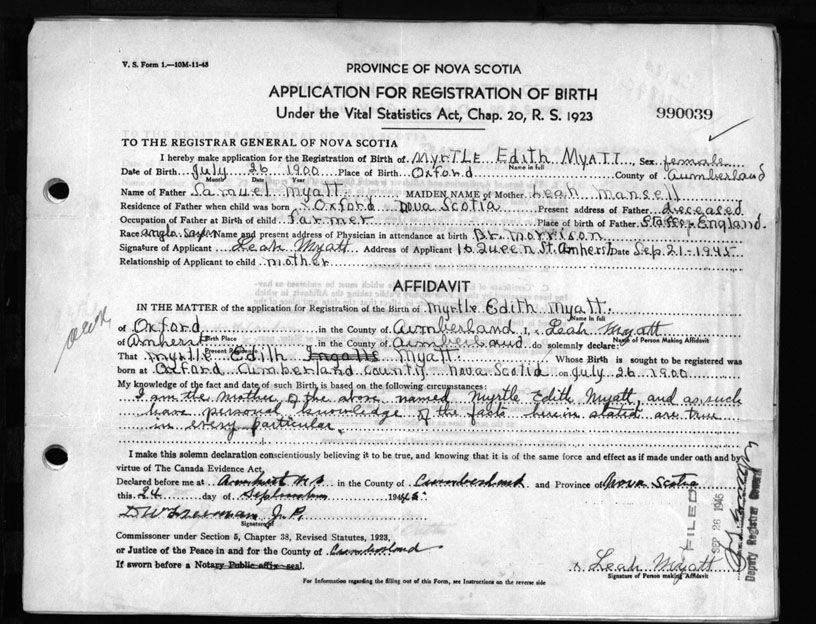 V. S. Form 1.—10M-11-43
PROVINCE OF NOVA SCOTIA
APPLICATION FOR REGISTRATION OF BIRTH
Under the Vital Statistics Act, Chap. 20, R. S. 1923
990039
TO THE REGISTRAR GENERAL OF NOVA SCOTIA
I hereby make application for the Registration of Birth of Myrtle Edith Myatt, Sex female
Name in full
Date of Birth July 26 1900 Place of Birth Oxford County of Cumberland
Month Date Year
Name of Father Samuel Myatt. MAIDEN NAME of Mother Leah Mansell
Residence of Father when child was born Oxford Nova Scotia Present address of Father deceased
Occupation of Father at Birth of child Farmer Place of birth of Father Staffs. England.
Race anglo Saxon Name and present address of Physician in attendance at birth Dr. Morrison
Signature of Applicant Leah Myatt Address of Applicant 16 Queen St. Amherst Date Sep. 21-1945
Relationship of Applicant to child mother
AFFIDAVIT
IN THE MATTER of the application for Registration of the Birth of Myrtle Edith Myatt.
Name in full
of Oxford in the County of Cumberland I, Leah Myatt
Birth Place Name of Person Making Affidavit
of Amherst in the County of Cumberland do solemnly declare:
Present Residence
That Myrtle Edith Ingalls Myatt. Whose Birth is sought to be registered was
born at Oxford Cumberland County Nova Scotia on July 26 1900
My knowledge of the fact and date of such Birth is based on the following circumstances:
I am the mother of the above named Myrtle Edith Myatt, and as such
have personal knowledge of the facts herein stated are true
in every particular.
I make this solemn declaration conscientiously believing it to be true, and knowing that it is of the same force and effect as if made under oath and by
virtue of The Canada Evidence Act,
Declared before me at Amherst N S in the County of Cumberland and Province of Nova Scotia
this 24 day of September 1945.
Freeman J. P.
Signature
Commissioner under Section 5, Chapter 38, Revised Statutes, 1923,
or Justice of the Peace in and for the County of Cumberland
If sworn before a Notary Public affix seal.
x Leah Myatt
Signature of Person making Affidavit
For Information regarding the filling out of this Form, see Instructions on the reverse side
FILED
SEP 26 1945
Deputy Registrar General